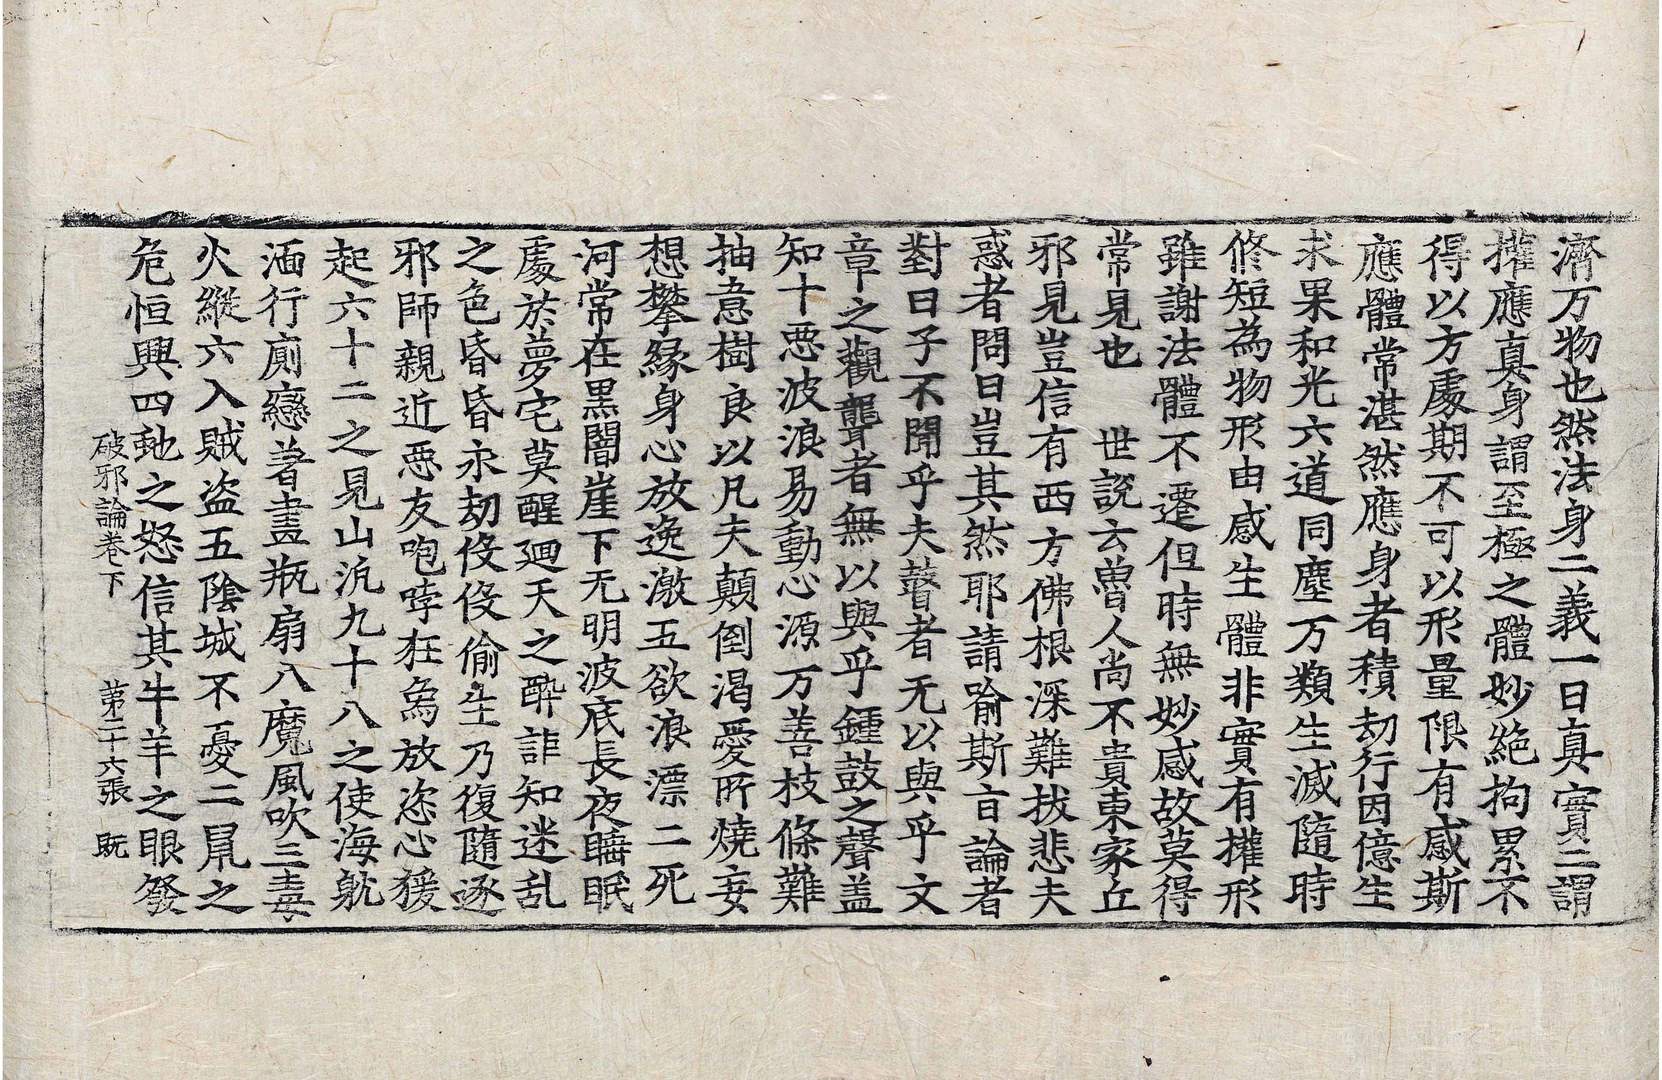 濟万物也然法身二義一曰真實二謂
權應真身謂至極之體妙絶拘累不
得以方處期不可以形量限有感斯
應體常湛然應身者積劫行因億生
求果和光六道同塵万類生滅隨時
修短為物形由感生體非實有權形
雖謝法體不遷但時無妙感故莫得
常見也　世說云曽人尚不貴東家丘
邪見豈信有西方佛根深難拔悲夫
惑者問曰豈其然耶請喻斯言論者
對曰子不聞乎夫瞽者无以與乎文
章之觀聾者無以與乎鍾鼓之聲盖
知十惡波浪易動心源万善枝條難
抽意樹良以凡夫顛倒渴愛所燒妄
想攀緣身心放逸激五欲浪漂二死
河常在黒闇崖下无明波底長夜睡眠
處於夢宅莫醒迴天之醉詎知迷乱
之色昏昏永劫伇伇偷生乃復隨逐
邪師親近惡友咆哮狂象放恣心猨
起六十二之見山沉九十八之使海躭
湎行廁戀著畫瓶扇八魔風吹三毒
火縱六入賊盜五陰城不憂二鼠之
危恒興四虵之怒信其牛羊之眼發
破邪論卷下　第二十六張　既